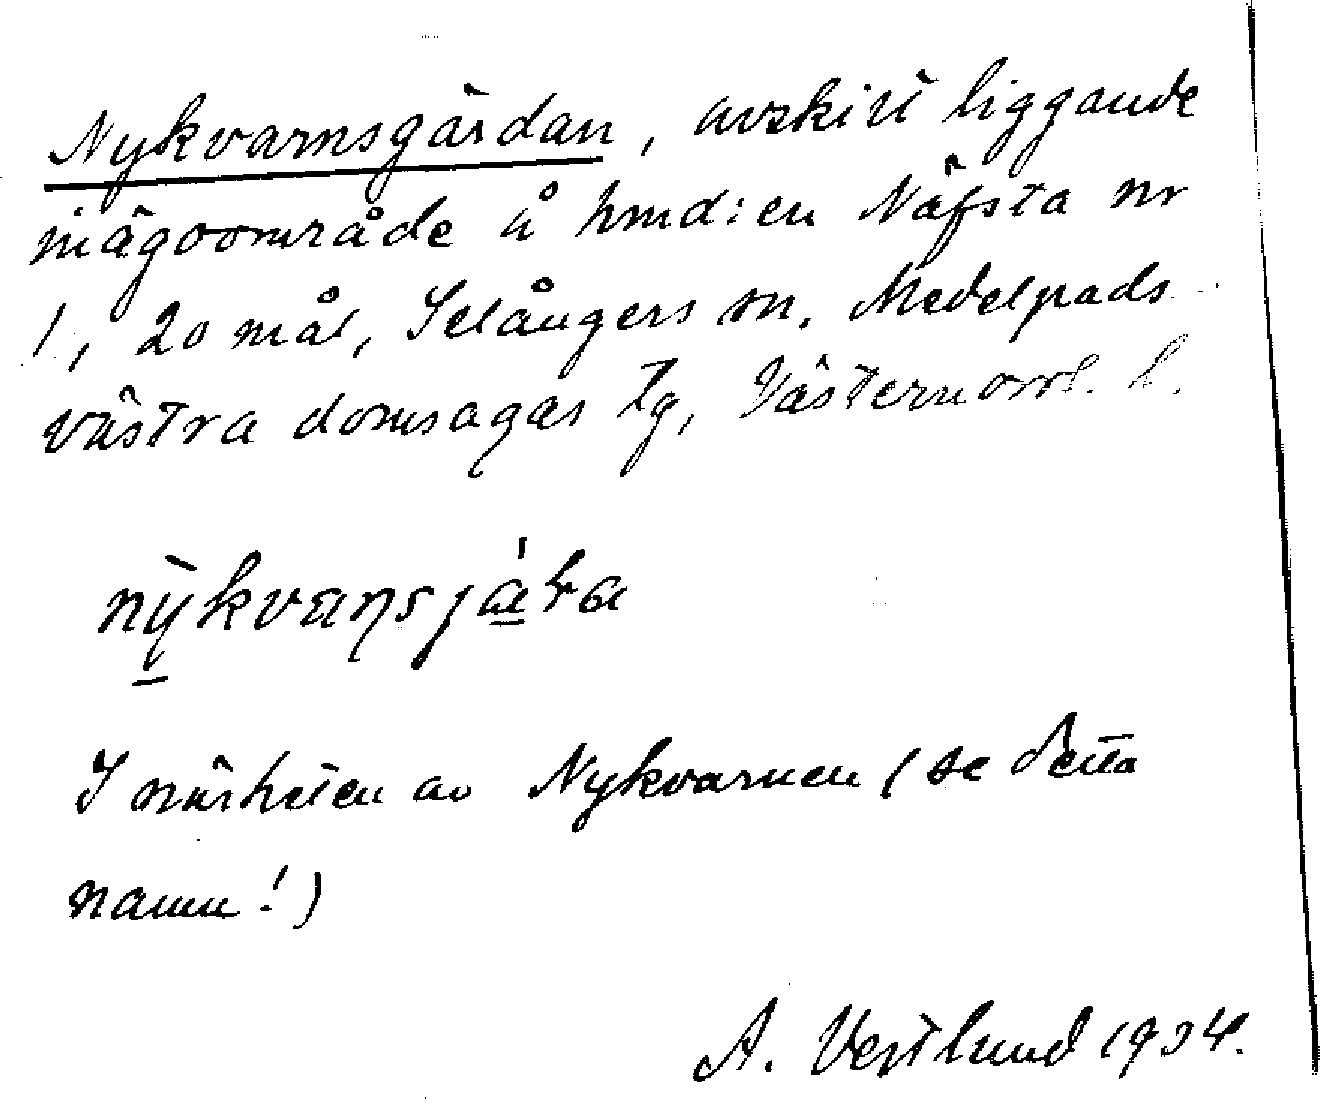 Nykvarnsgärdan, avskilt liggande
inägoområde å hmd:en Näfsta nr
1, 20 mål, Selångers sn, Medelpads
västra domsagas tg, Västernorrl. l.
I närheten av Nykvarnen (se detta
namn!)
A. Vestlund 1934.